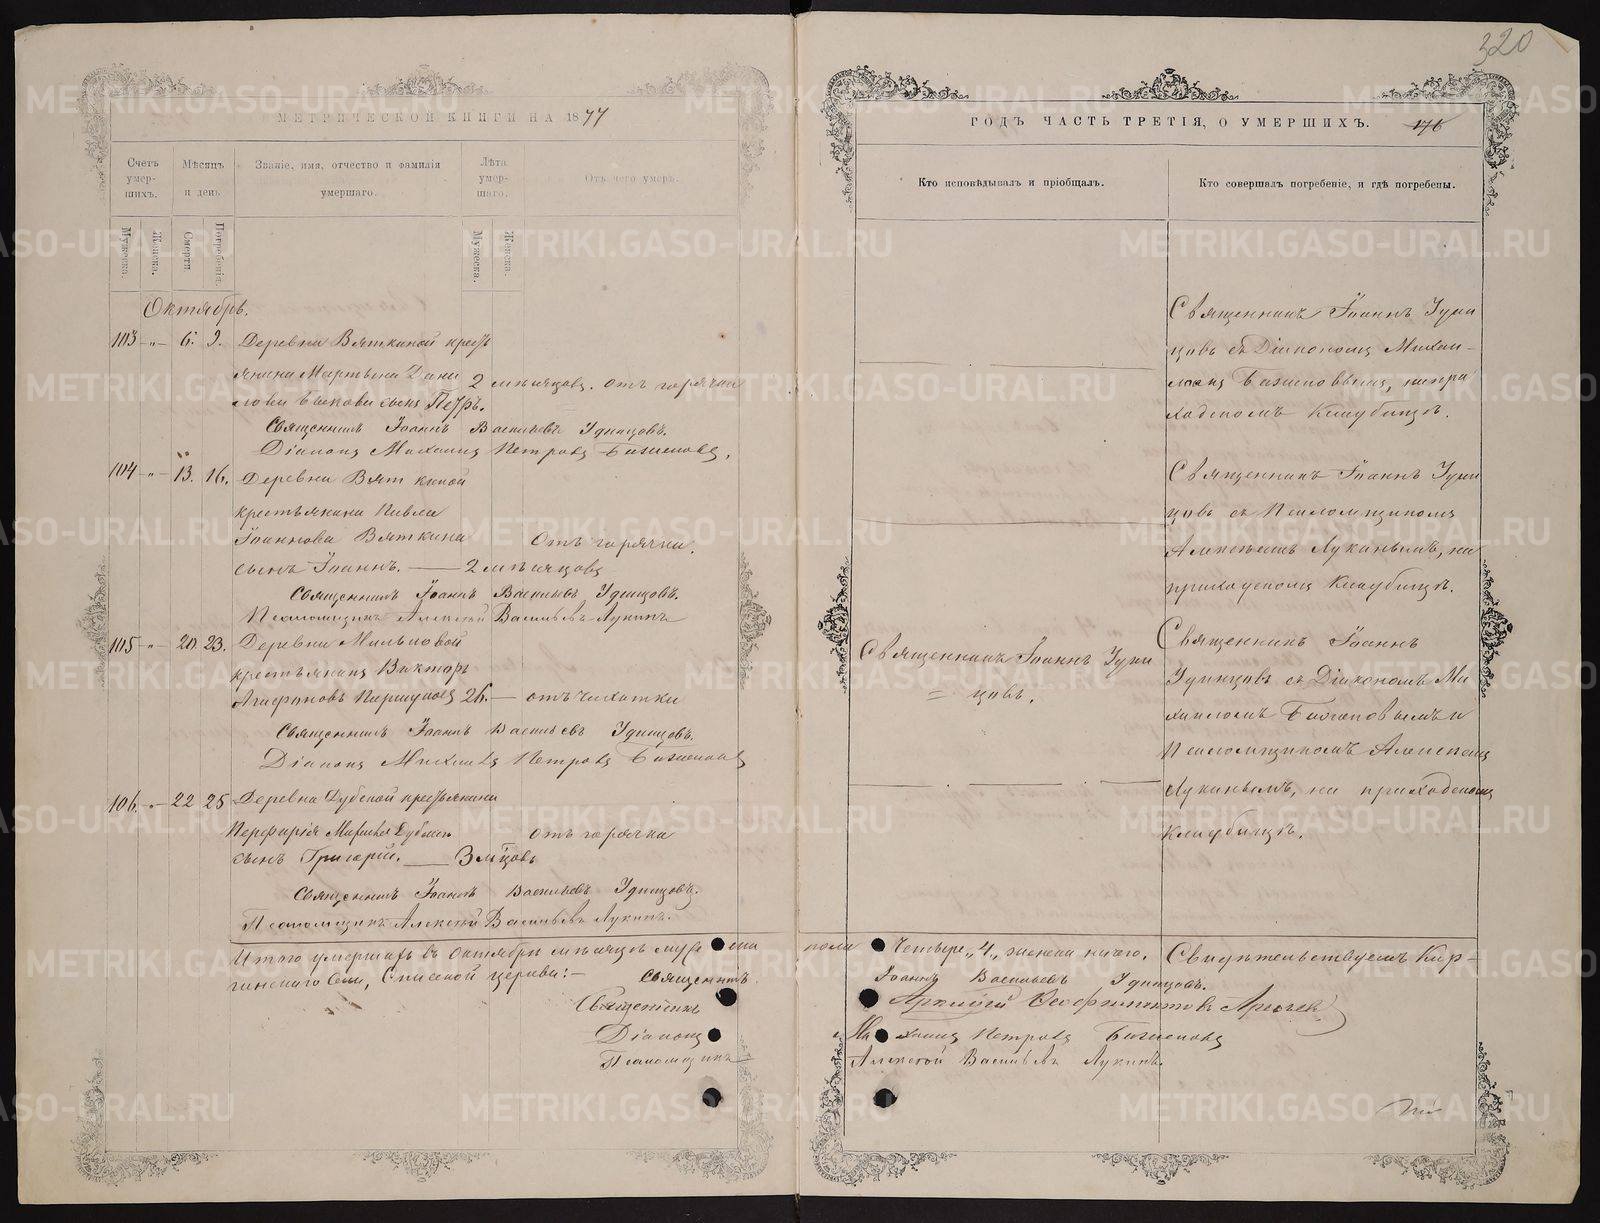 320
МЕТРИЧЕСКОЙ КНИГИ НА 1877
Счетъ умер-шихъ.
Мѣсяцъ и день
Званіе, имя, отчество и фамилія умершаго.
Лѣта умер-шаго.
Отъ чего умеръ.
Мужеска.
Женска.
Смерти.
Погребенія.
Мужеска.
Женска.
Октябрь.
103 -"- 6. 9. Деревни Вяткиной кресть
янина Мартына Дани
лова сынъ Петръ. 2 мѣсяцовъ. отъ горячки
Священникъ Іоаннъ Васильевъ Удинцовъ.
Діаконъ Михаилъ Петровъ
104 -"- 13. 16. Деревни Вяткиной
крестьянина Павла
Іоаннова Вяткина отъ горячки.
сынъ Іоаннъ. — 2 мѣсяцовъ
Священникъ Іоаннъ Васильевъ Удинцовъ.
Псаломщикъ Алексѣй Васильевъ Лукинъ
105 -"- 20. 23. Деревни Мальцовой
крестьянинъ Викторъ
26. — отъ чахотки
Священникъ Іоаннъ Васильевъ Удинцовъ.
Діаконъ Михаилъ Петровъ
106. -"- 22 25 Деревни Дубской крестьянина
отъ горячки
сынъ Григорій. — 3 мѣсяцовъ
Священникъ Іоаннъ Васильевъ Удинцовъ.
Псаломщикъ Алексѣй Васильевъ Лукинъ.
Итого умершихъ въ октябрѣ мѣсяцѣ муже ска
гинскаго села, Спасской церкви:—
Священникъ
Священникъ
Діаконъ
Псаломщикъ
ГОДЪ ЧАСТЬ ТРЕТІЯ, О УМЕРШИХЪ.
176
Кто исповѣдывалъ и пріобщалъ.
Кто совершалъ погребеніе, и гдѣ погребены.
Священникъ Іоаннъ Удин
цовъ съ Діакономъ Михаи-
ломъ на при
ходскомъ кладбищѣ.
Священникъ Іоаннъ Удин
цовъ съ Псаломщикомъ
Алексѣемъ Лукинымъ, на
приходскомъ кладбищѣ.
Священникъ Іоаннъ Удин
= цовъ.
Священникъ Іоаннъ
Удинцовъ съ Діакономъ Ми
хаиломъ и
Псаломщикомъ Алексѣемъ
Лукинымъ, на приходскомъ
кладбищѣ.
пола Четыре „4„ женска ничего. Свидѣтельствуемъ Кир-
Іоаннъ Васильевъ Удинцовъ.
Михаилъ Петровъ
Алексѣй Васильевъ Лукинъ.
METRIKI.GASO-URAL.RU